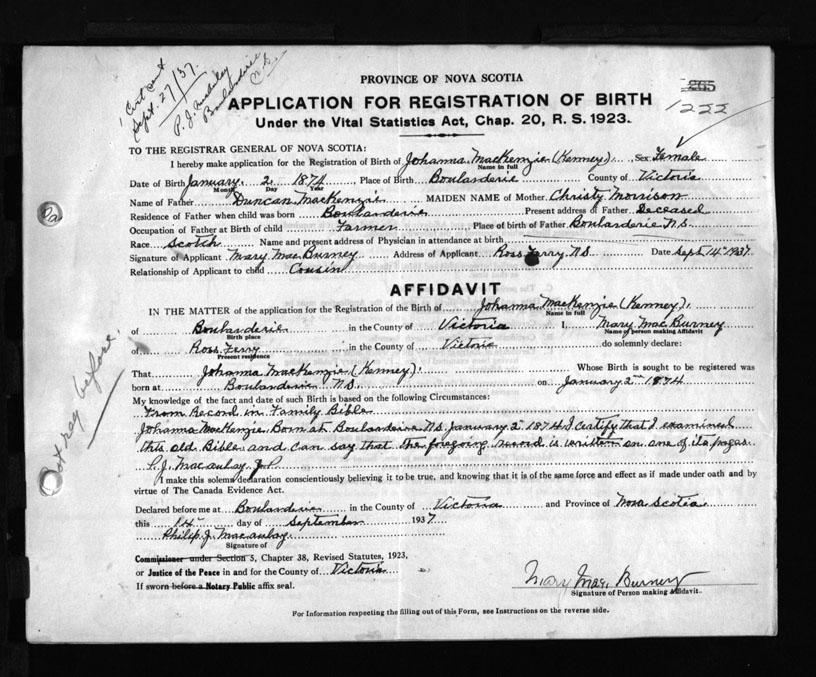 Cert sent
Sept. 27/37.
P. J.
Boularderie
N.S.
PROVINCE OF NOVA SCOTIA
265
1222
APPLICATION FOR REGISTRATION OF BIRTH
Under the Vital Statistics Act, Chap. 20, R. S. 1923.
TO THE REGISTRAR GENERAL OF NOVA SCOTIA:
I hereby make application for the Registration of Birth of Johanna MacKenzie (Kenney). Sex Female
Name in full
Date of Birth January 2 1874 Place of Birth Boularderie County of Victoria
Month Day Year
Name of Father Duncan MacKenzie MAIDEN NAME of Mother Christy Morrison
Residence of Father when child was born Boularderie Present address of Father Deceased
Occupation of Father at Birth of child Farmer Place of birth of Father Boularderie N.S.
Race Scotch Name and present address of Physician in attendance at birth
Signature of Applicant Mary MacBurney Address of Applicant Ross Ferry N.S. Date Sept 14th 1937
Relationship of Applicant to child Cousin
AFFIDAVIT
IN THE MATTER of the application for the Registration of the Birth of Johanna MacKenzie (Kenney).
Name in full
of Boularderie in the County of Victoria I, Mary MacBurney
Birth place Name of person making Affidavit
of Ross Ferry in the County of Victoria do solemnly declare:
Present residence
That Johanna MacKenzie (Kenney). Whose Birth is sought to be registered was
born at Boularderie N.S. on January 2nd 1874
My knowledge of the fact and date of such Birth is based on the following Circumstances:
From Record in Family Bible
Johanna MacKenzie. Born at Boularderie N.S. January 2 1874 I certify that I examined
this old Bible and can say that the foregoing record is written on one of its pages.
P. J. Macaulay J.P.
I make this solemn declaration conscientiously believing it to be true, and knowing that it is of the same force and effect as if made under oath and by
virtue of The Canada Evidence Act.
Declared before me at Boularderie in the County of Victoria and Province of Nova Scotia
this 14 day of September 1937.
Philip J. Macaulay
Signature of
Commissioner under Section 5, Chapter 38, Revised Statutes, 1923,
or Justice of the Peace in and for the County of Victoria
If sworn before a Notary Public affix seal.
Mary Mac Burney
Signature of Person making Affidavit.
For Information respecting the filling out of this Form, see Instructions on the reverse side.
Not reg before.